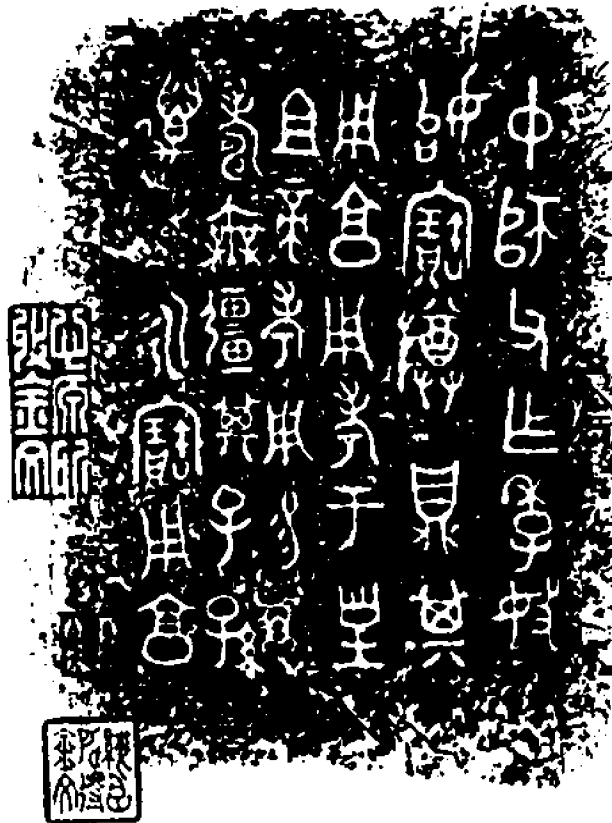 中師父乍季
寶尊鼎其
用享用考于皇
且帝考用易眉
壽無疆其子孫
萬年永寶用享